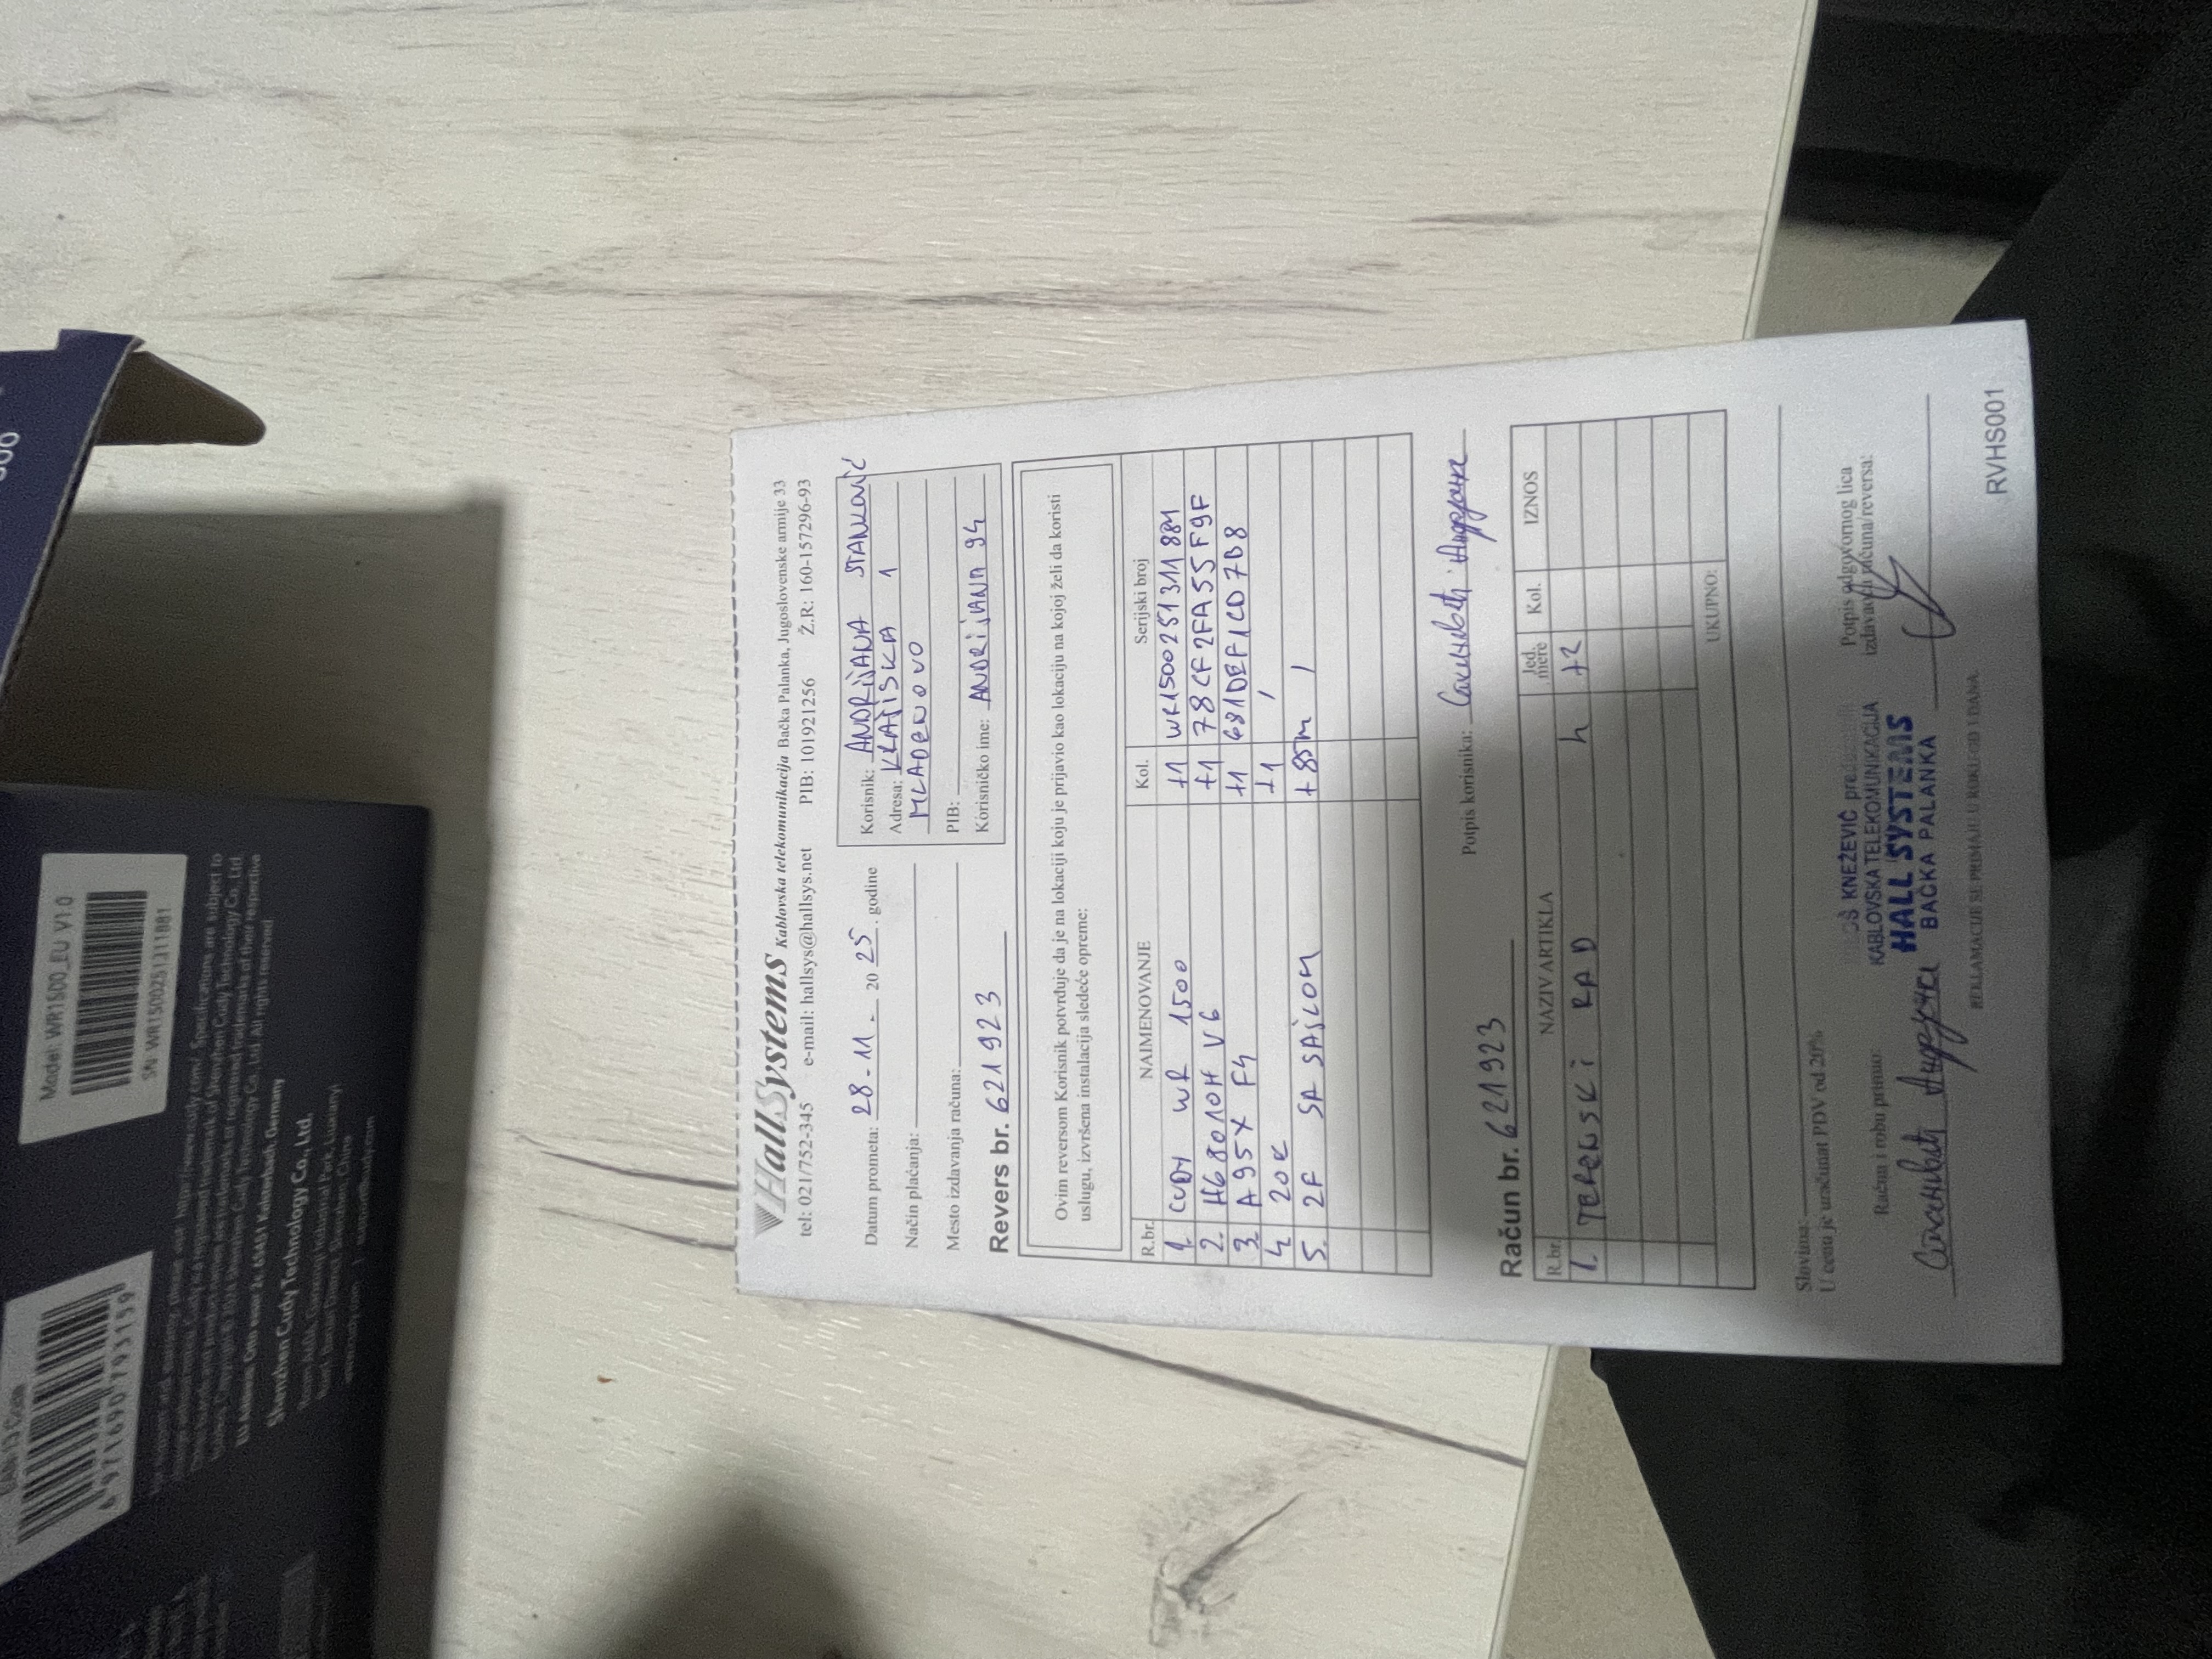 HallSystems Kablovska telekomunikacija Bačka Palanka, Jugoslovenske armije 33
tel: 021/752-345 e-mail: hallsys@hallsys.net PIB: 101921256 Ž.R: 160-157296-93
Datum prometa: 28-11- 2025. godine
Način plaćanja:
Mesto izdavanja računa:
Revers br. 621923
Korisnik: ANDRIJANA STANKOVIĆ
Adresa: KRAJIŠKA 1
MLADENOVO
PIB:
Korisničko ime: ANDRIJANA 94
Ovim reversom Korisnik potvrđuje da je na lokaciji koju je prijavio kao lokaciju na kojoj želi da koristi
uslugu, izvršena instalacija sledeće opreme:
R.br. NAIMENOVANJE Kol. Serijski broj
1. CUDY WR 1500 +1 WR1500251311881
2. H68010H V6 +1 78CF2FA55F9F
3. A95X F4 +1 681DEF1CD7B8
4. 20€ +1 /
5. 2F SA SAJLOM +85m /
Potpis korisnika:
Račun br. 621923
R.br. NAZIV ARTIKLA Jed. mere Kol. IZNOS
1. TERENSKI RAD h +2
UKUPNO:
Slovima:
U cenu je uračunat PDV od 20%
Račun i robu primio:
Potpis odgovornog lica
izdavaoca računa/reversa:
KNEŽEVIĆ
KABLOVSKA TELEKOMUNIKACIJA
HALL SYSTEMS
BAČKA PALANKA
REKLAMACIJE SE PRIMAJU U ROKU OD 3 DANA
RVHS001
Model: WR1500_EU V1.0
SN: WR1500251311881
6971690793159
EU Address:
Shenzhen Cudy Technology Co., Ltd.